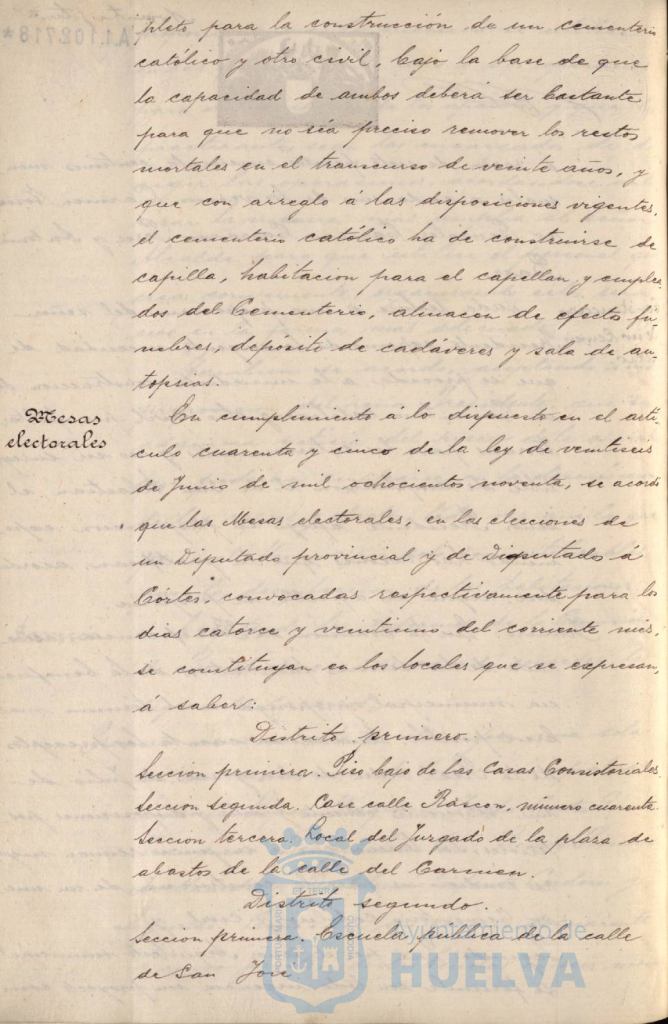 pleto para la construcción de un cementerio
católico y otro civil, bajo la base de que
la capacidad de ambos deberá ser bastante
para que no sea preciso remover los restos
mortales en el transcurso de veinte años, y
que con arreglo á las disposiciones vigentes,
el cementerio católico ha de construirse de
capilla, habitacion para el capellan y emplea-
dos del Cementerio, almacen de efecto fú-
nebres, depósito de cadáveres y sala de au-
topsias.
Mesas
electorales
En cumplimiento á lo dispuesto en el artí-
culo cuarenta y cinco de la ley de veintiseis
de Junio de mil ochocientos noventa, se acordó
que las Mesas electorales, en las elecciones de
un Diputado provincial y de Diputado á
Córtes, convocadas respectivamente para los
dias catorce y veintiuno del corriente mes,
se constituyan en los locales que se expresan,
á saber:
Distrito primero.
Seccion primera. Piso bajo de las Casas Consistoriales.
Seccion segunda. Casa calle Rascon, número cuarenta.
Seccion tercera. Local del Juzgado de la plaza de
abastos de la calle del Carmen.
Distrito segundo.
Seccion primera. Escuela publica de la calle
de San José
Ayuntamiento de
HUELVA